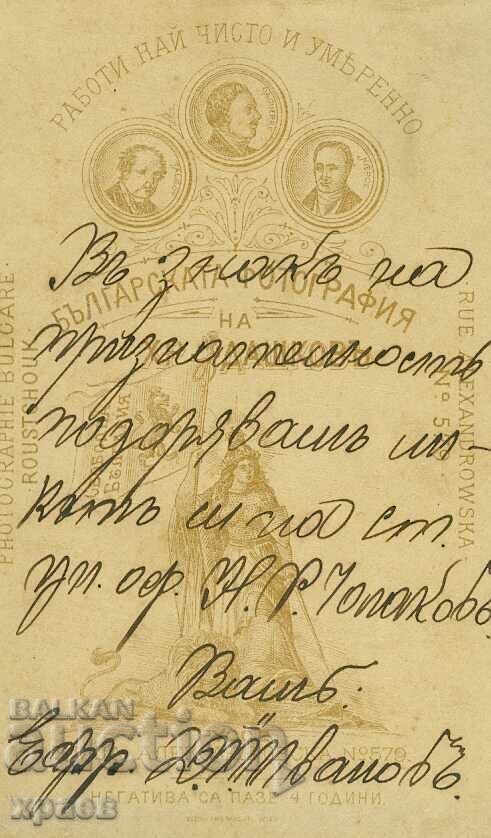 РАБОТИ НАЙ ЧИСТО И УМѢРЕННО
БЪЛГАРСКАТА ФОТОГРАФИЯ
НА
PHOTOGRAPHIE BULGARE.
ROUSTCHOUK
RUE ALEXANDROWSKA,
No 570
Въ знакъ на
признателность
подарявамъ ли-
кътъ ми на ст.
уп. оф. Н. Р. Чолаковъ
Вашъ:
Ефр. Ивановъ
No 570
НЕГАТИВА СА ПАЗЕ 4 ГОДИНИ.
BALKAN
auction
храбов